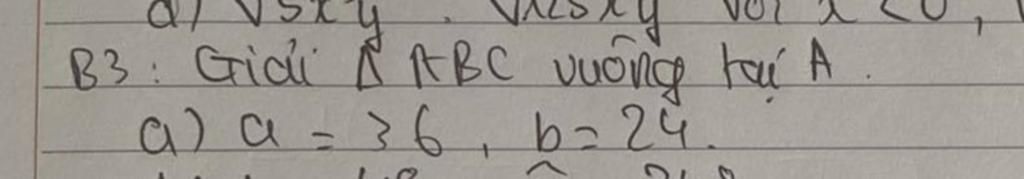 d) √5x y . √125xy với x < 0,
B3 : Giải Δ ABC vuông tại A .
a) a = 36 , b = 24.